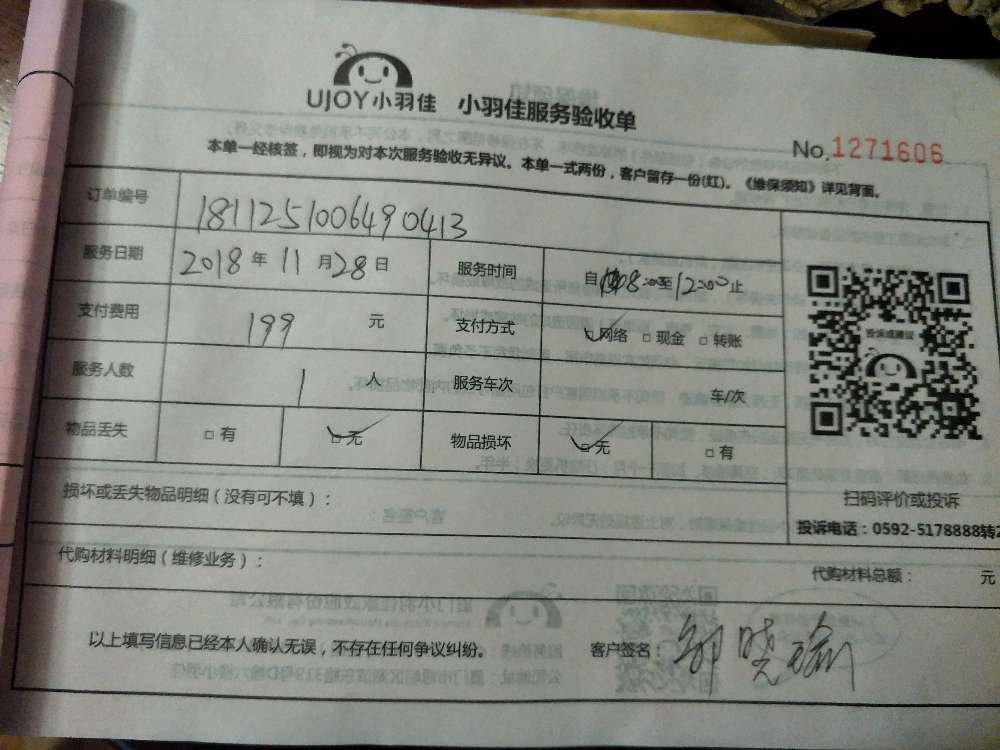 UJOY小羽佳 小羽佳服务验收单
No.1271606
本单一经核签，即视为对本次服务验收无异议。本单一式两份，客户留存一份(红)。《维保须知》详见背面。
订单编号 1811251006490413
服务日期 2018年11月28日 服务时间 自8:00至12:00止
支付费用 199元 支付方式 ☑网络 □现金 □转账
服务人数 1人 服务车次 车/次
物品丢失 □有 ☑无 物品损坏 ☑无 □有
投诉或建议
扫码评价或投诉
投诉电话：0592-5178888转2
损坏或丢失物品明细（没有可不填）：
代购材料明细（维修业务）：
代购材料总额： 元
以上填写信息已经本人确认无误，不存在任何争议纠纷。 客户签名：郭晓瑜